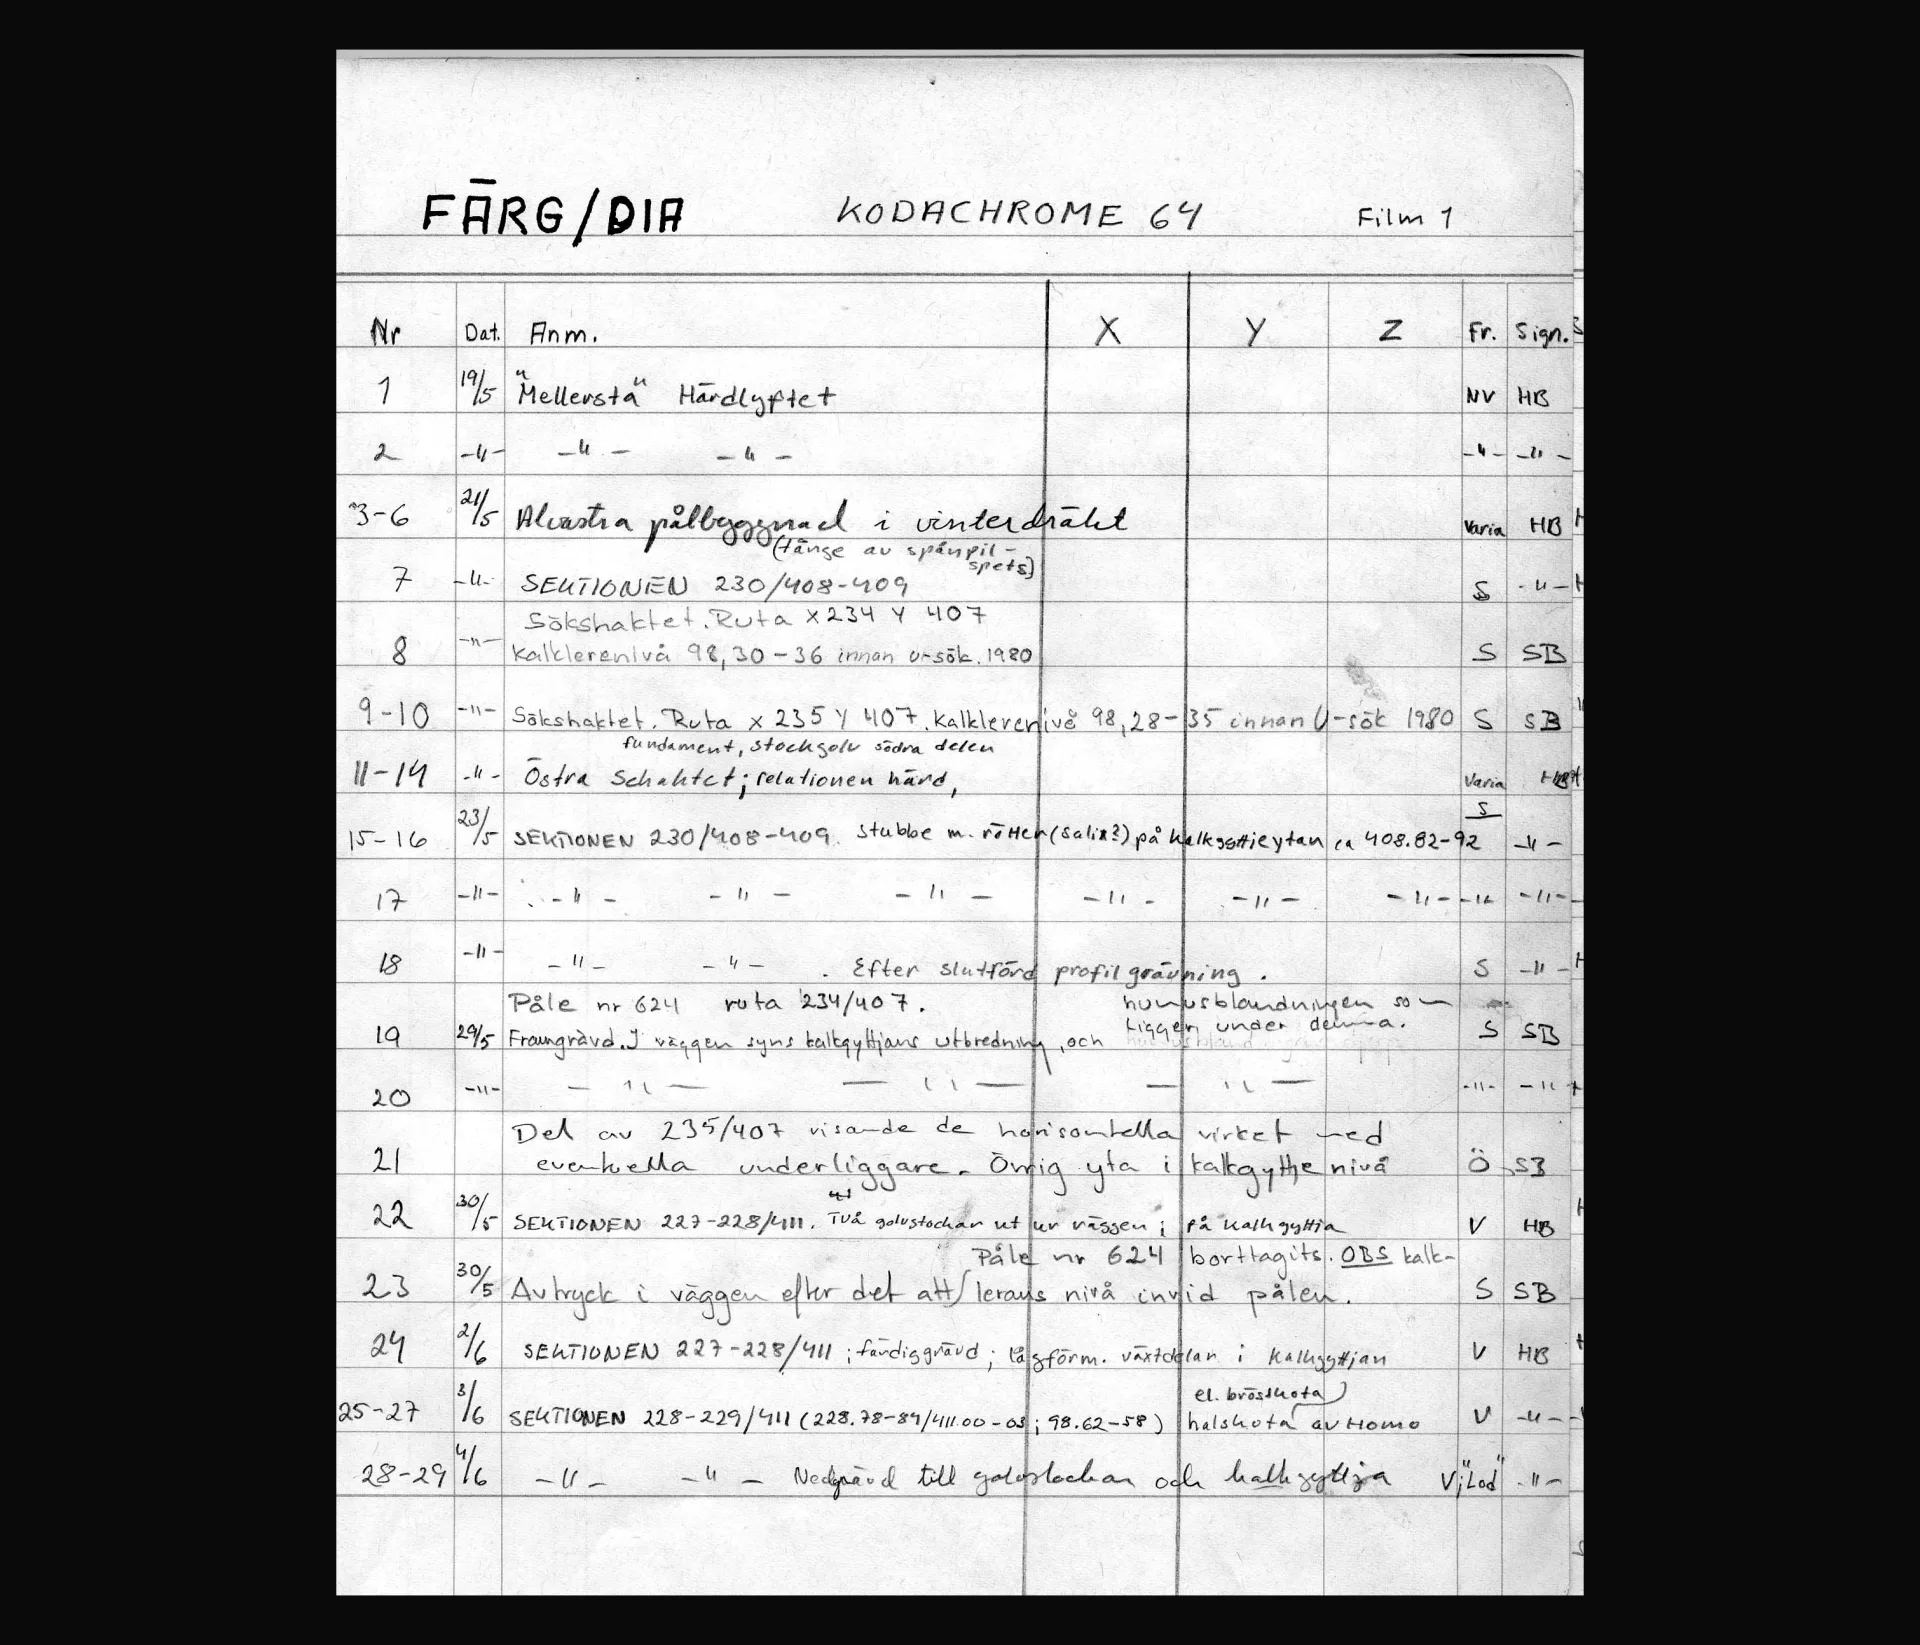 FÄRG/DIA KODACHROME 64 Film 1
Nr Dat. Anm. X Y Z Fr. Sign.
1 19/5 "Mellersta" Härdlyftet NV HB
2 -"- -"- -"- -"- -"-
3-6 21/5 Alvastra pålbyggnad i vinterdräkt Varia HB
(tånge av spånpil-
spets)
7 -"- SEKTIONEN 230/408-409 S -"-
Sökshaktet. Ruta X234 Y 407
8 -"- Kalklerenivå 98,30-36 innan u-sök. 1980 S SB
9-10 -"- Sökshaktet. Ruta X 235 Y 407. Kalklerenivå 98,28-35 innan U-sök 1980 S SB
fundament, stockgolv södra delen
11-14 -"- Östra Schaktet; relationen härd, Varia HB
S
15-16 23/5 SEKTIONEN 230/408-409. Stubbe m. rötter (Salix?) på kalkgyttjeytan ca 408.82-92 -"-
17 -"- -"- -"- -"- -"- -"- -"- -"- -"-
18 -"- -"- -"- . Efter slutförd profilgrävning. S -"-
Påle nr 624 ruta 234/407. humusblandningen som
ligger under denna.
19 29/5 Framgrävd. I väggen syns kalkgyttjans utbredning, och S SB
20 -"- -"- -"- -"- -"- -"-
Del av 235/407 visande de horisontella virket med
21 eventuella underliggare. Övrig yta i kalkgyttjenivå Ö SB
22 30/5 SEKTIONEN 227-228/411. Två golvstockar ut ur väggen; på kalkgyttja V HB
Påle nr 624 borttagits. OBS kalk-
23 30/5 Avtryck i väggen efter det att/ lerans nivå invid pålen. S SB
24 2/6 SEKTIONEN 227-228/411; färdiggrävd; tågförm. växtdelar i kalkgyttjan V HB
el. bröstkota)
25-27 3/6 SEKTIONEN 228-229/411 (228.78-84/411.00-03; 98.62-58) halskota av Homo V -"-
28-29 4/6 -"- -"- Nedgrävd till golvstockar och kalkgyttja V;"Lod" -"-